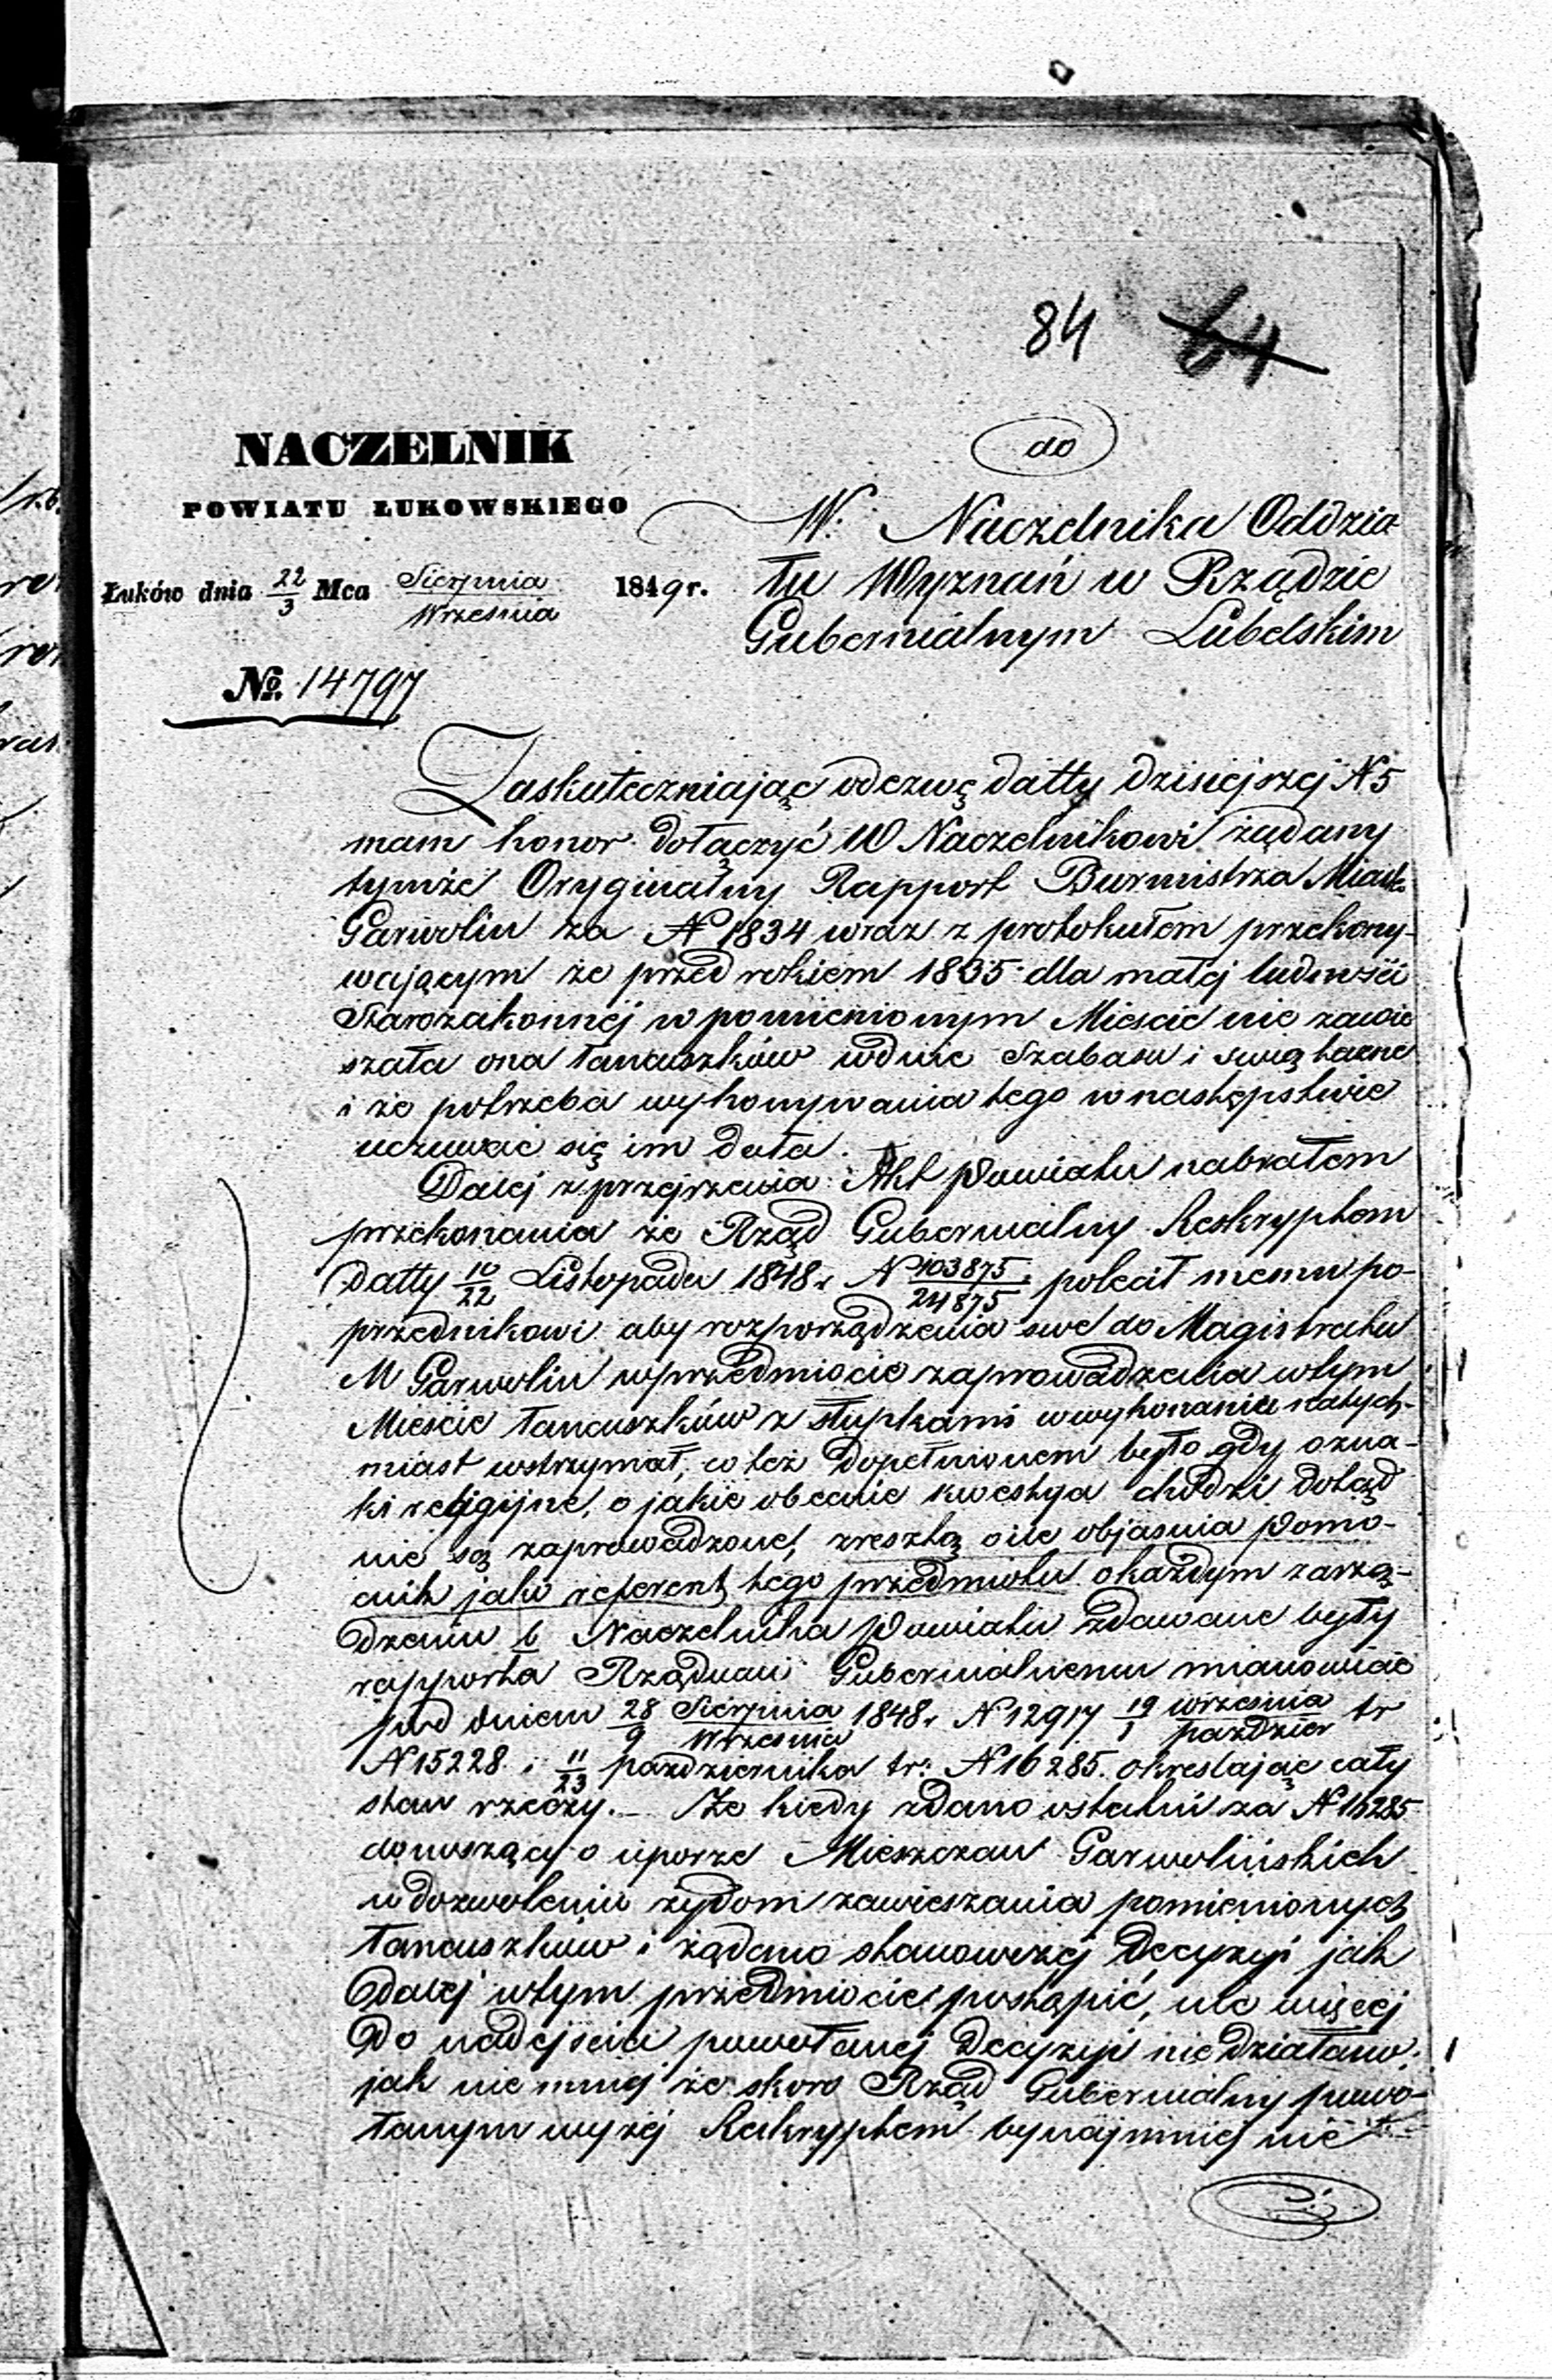 84 64
NACZELNIK
POWIATU ŁUKOWSKIEGO
Łuków dnia 22/3 Mca Sierpnia/Września 1849 r.
No. 14797
do
W. Naczelnika Oddzia-
łu Wyznań w Rządzie
Gubernialnym Lubelskim
Zaskuteczniając odezwę datty dzisiejszej N 5
mam honor dołączyć W Naczelnikowi żądany
tymże Oryginalny Rapport Burmistrza Miasta
Garwolin za N 1834 wraz z protokułem przekony-
wającym że przed rokiem 1835 dla małej ludności
Starozakonnej w pomienionym Mieście nie zawie
szała ona łancuszków w dnie Szabasu i swiąteczne
i że potrzeba wykonywania tego w następstwie
uczuwać się im dała.
Dalej z przejrzenia Akt Powiatu nabrałem
przekonania że Rząd Gubernialny Reskryptem
Datty 10/22 Listopada 1848 r N 103875/24875 polecił memu po-
przednikowi aby rozporządzenia swe do Magistratu
M Garwolin w przedmiocie zaprowadzenia w tym
Mieście łancuszków z słupkami w wykonaniu natych-
miast wstrzymał, co też dopełnionem było gdy ozna-
ki religijne, o jakie obecnie kwestya chodzi dotąd
nie są zaprowadzone, zresztą o ile objasnia Pomo-
cnik jako referent tego przedmiotu o każdym zarzą-
dzeniu b Naczelnika Powiatu zdawane były
rapporta Rządowi Gubernialnemu mianowicie
pod dniem 28/9 Sierpnia/Września 1848 r N 12917 19/1 września/paździer tr
N 15228 i 11/23 października tr: N 16285. okreslając cały
stan rzeczy.— Ze kiedy zdano ostatni za N 16285
donoszący o uporze Mieszczan Garwolińskich
w dozwoleniu żydom zawieszania pomienionych
łancuszków i żądano stanowczej Decyzyi jak
Dalej w tym przedmiocie postąpić, nic więcej
Do nadejścia powołanej Decyzyi nie działano;
jak nie mniej że skoro Rząd Gubernialny powo-
łanym wyżej Reskryptem bynajmniej nie